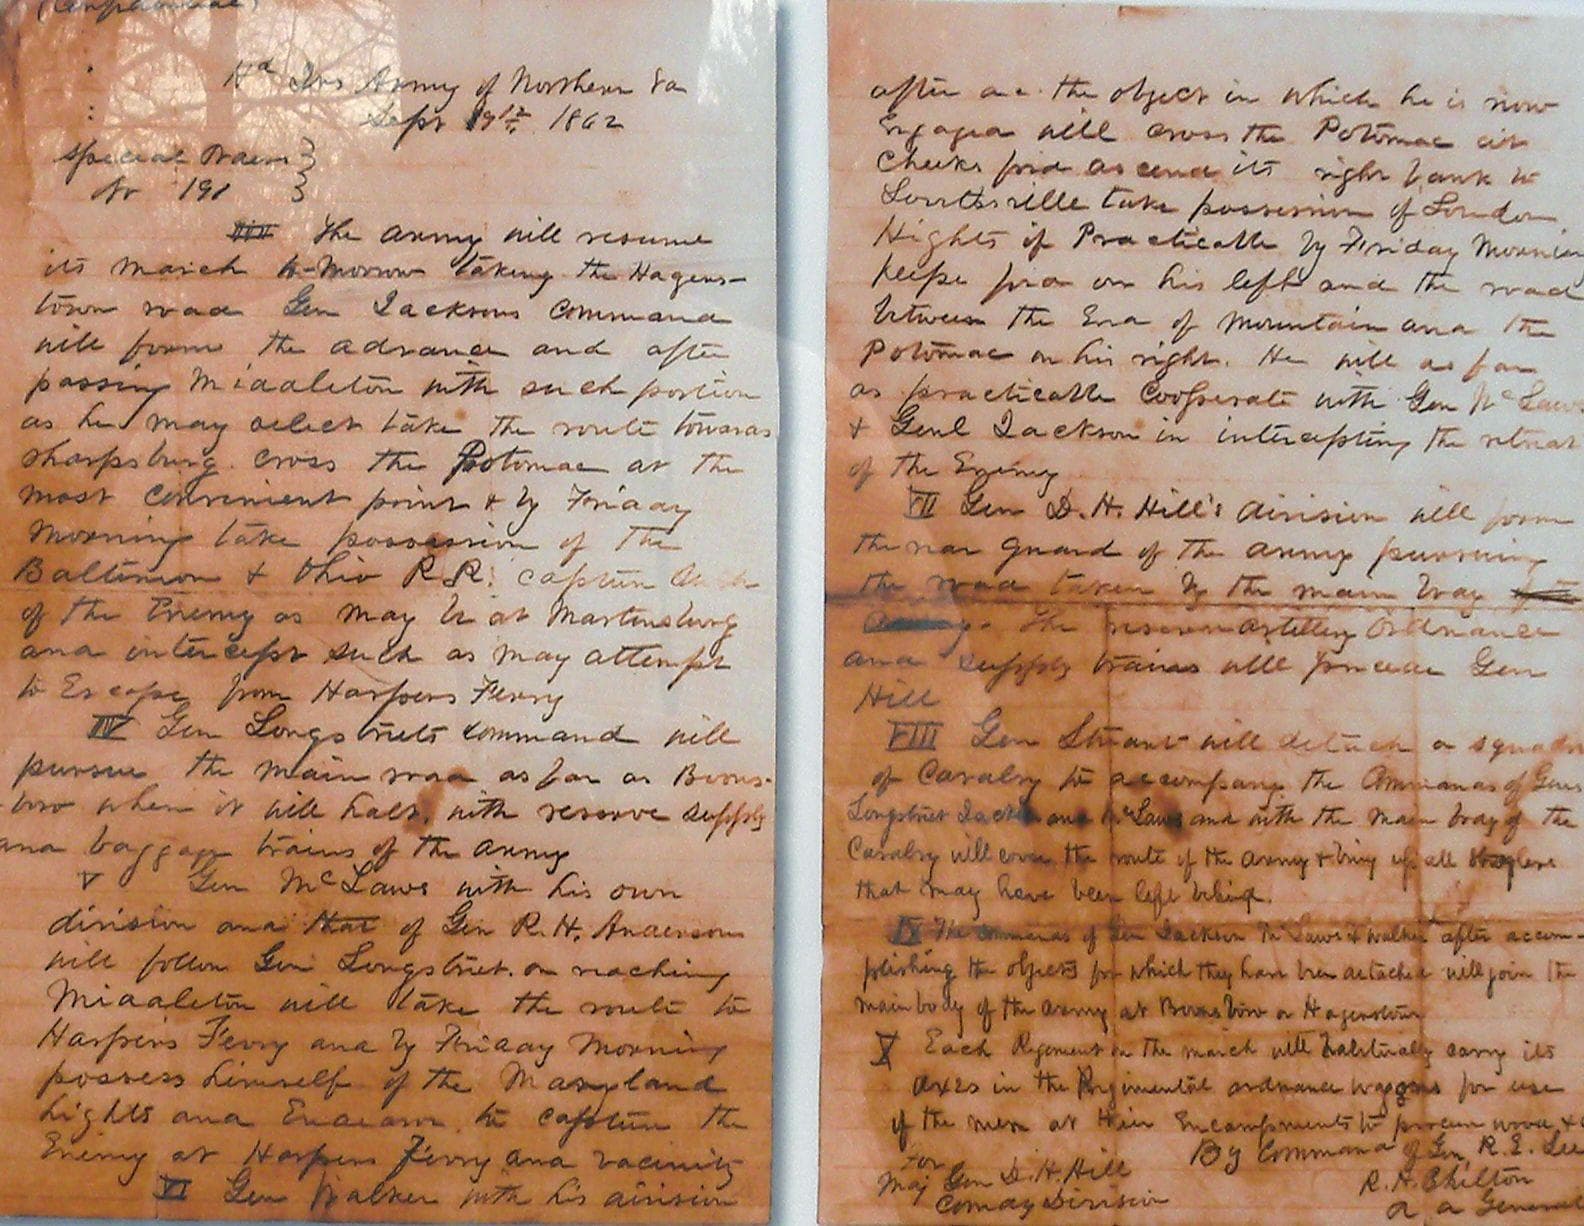 (Confidential)
Hd Qrs Army of Northern Va
Sept 9th 1862
Special Orders }
Nr 191 }
III The army will resume
its march to-morrow taking the Hagers-
town road Gen Jacksons Command
will form the advance and after
passing Middleton with such portion
as he may select take the route towards
Sharpsburg. Cross the Potomac at the
most convenient point & by Friday
Morning take possession of the
Baltimore & Ohio R.R. capture such
of the Enemy as may be at Martinsburg
and intercept such as may attempt
to Escape from Harpers Ferry
IV Gen Longstreets command will
pursue the main road as far as Boons-
boro when it will halt. with reserve supply
and baggage trains of the army
V Gen McLaws with his own
division and that of Gen R.H. Andersons
will follow Gen Longstreet. on reaching
Middleton will take the route to
Harpers Ferry and by Friday Morning
possess himself of the Maryland
hights and Endeavor to capture the
Enemy at Harpers Ferry and vacinity
VI Gen Walker with his division
after acc. the object in which he is now
Engaged will cross the Potomac at
Cheeks ford ascend its right bank to
Lovettsville take possession of Loudon
Hights if Practicable by Friday Morning
Keeps ford on his left and the road
between the End of Mountain and the
Potomac on his right. He will as far
as practicable Cooperate with Gen McLaws
& Genl Jackson in intercepting the retreat
of the Enemy
VII Gen D.H. Hill's division will form
the rear guard of the army pursuing
the road taken by the main body
Army. The reserve artillery Ordnance
and supply trains will precede Gen
Hill
VIII Gen Stuart will detach a squadron
of Cavalry to accompany the Commands of Gens
Longstreet Jackson and McLaws and with the main body of the
Cavalry will cover the route of the Army & bring up all straglers
that may have been left behind.
IX The commands of Gen Jackson McLaws & Walker after accom-
plishing the objects for which they have been detached will join the
main body of the army at Boonsboro or Hagerstown
X Each Regiment on the march will habitually carry its
axes in the Regimental ordnance waggons for use
of the men at their Encampments to procure wood &c
By Command of Gen R.E. Lee
For
Maj Gen D.H. Hill
R.H. Chilton
Comdg Division
A A General